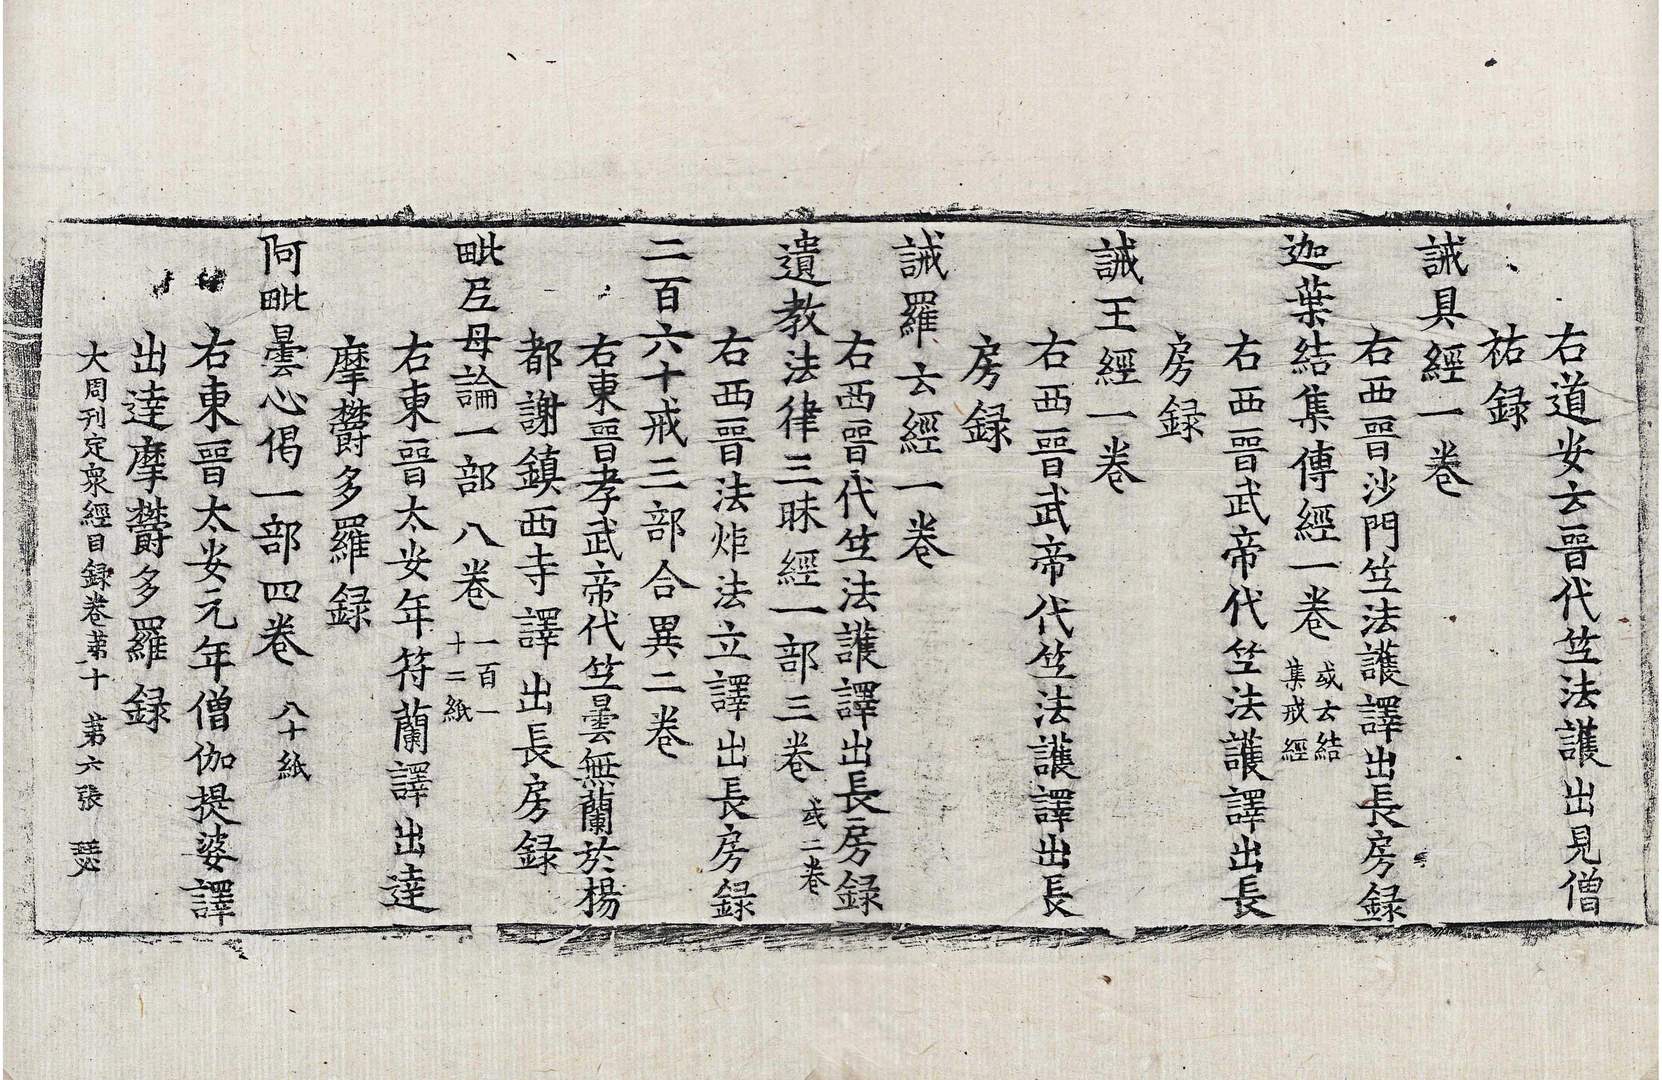 右道安云晉代竺法護出見僧
祐録
誡具經一卷
右西晉沙門竺法護譯出長房録
迦葉結集傳經一卷 或云結集戒經
右西晉武帝代竺法護譯出長
房録
誡王經一卷
右西晉武帝代竺法護譯出長
房録
誡羅云經一卷
右西晉代竺法護譯出長房録
遺教法律三昧經一部三卷 或二卷
右西晉法炬法立譯出長房録
二百六十戒三部合異二卷
右東晉孝武帝代竺曇無蘭於楊
都謝鎮西寺譯出長房録
毗尼母論一部八卷 一百一十二紙
右東晉太安年符蘭譯出達
摩欝多羅録
阿毗曇心偈一部四卷 八十紙
右東晉太安元年僧伽提婆譯
出達摩欝多羅録
大周刊定衆經目録卷苐十 苐六張 瑟